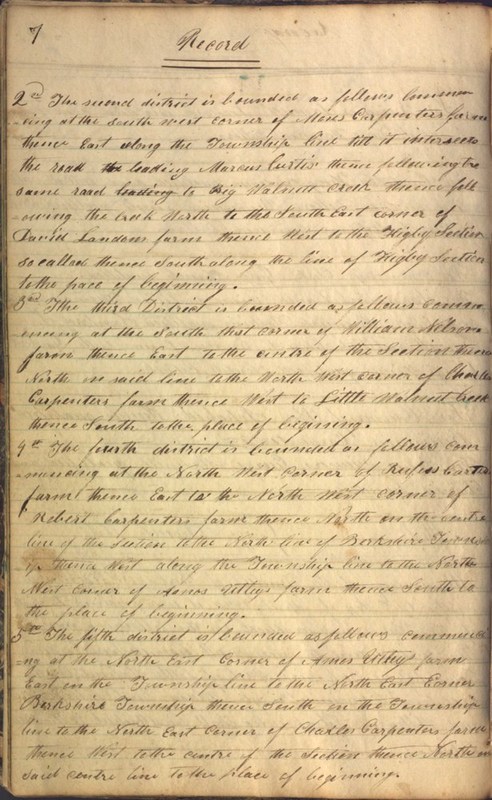 7
Record
2nd The second district is bounded as follows Commen
-cing at the South west corner of Moses Carpenters farm
thence East along the Township line till it intersects
the road leading Marcus Curtis thence following the
same road leading to Big Walnut Creek thence foll
-owing the creek North to the South East corner of
David Landons farm thence West to the Higby Section
so called thence South along the line of Higby Section
to the pace of beginning.
3rd The third District is bounded as follows comm
-encing at the South West corner of William Nelsons
farm thence East to the centre of the Section thence
North on said line to the North West corner of Charles
Carpenters farm thence West to Little Walnut Creek
thence South to the place of begining.
4th The fourth district is bounded as follows com
-mencing at the North West Corner of Rufus Carters
farm thence East to the North West corner of
Robert Carpenters farm thence North on the centre
line of the Section to the North line of Berkshire Townsh
ip thence West along the Township line to the North
West Corner of Amos Utleys farm thence South to
the place of beginning.
5th The fifth district is bounded as follows commenci
-ng at the North East Corner of Amos Utleys farm
East on the Township line to the North East Corner
Berkshire Township thence South on the Township
line to the North East Corner of Charles Carpenters farm
thence West to the centre of the Section thence North on
said centre line to the place of beginning.